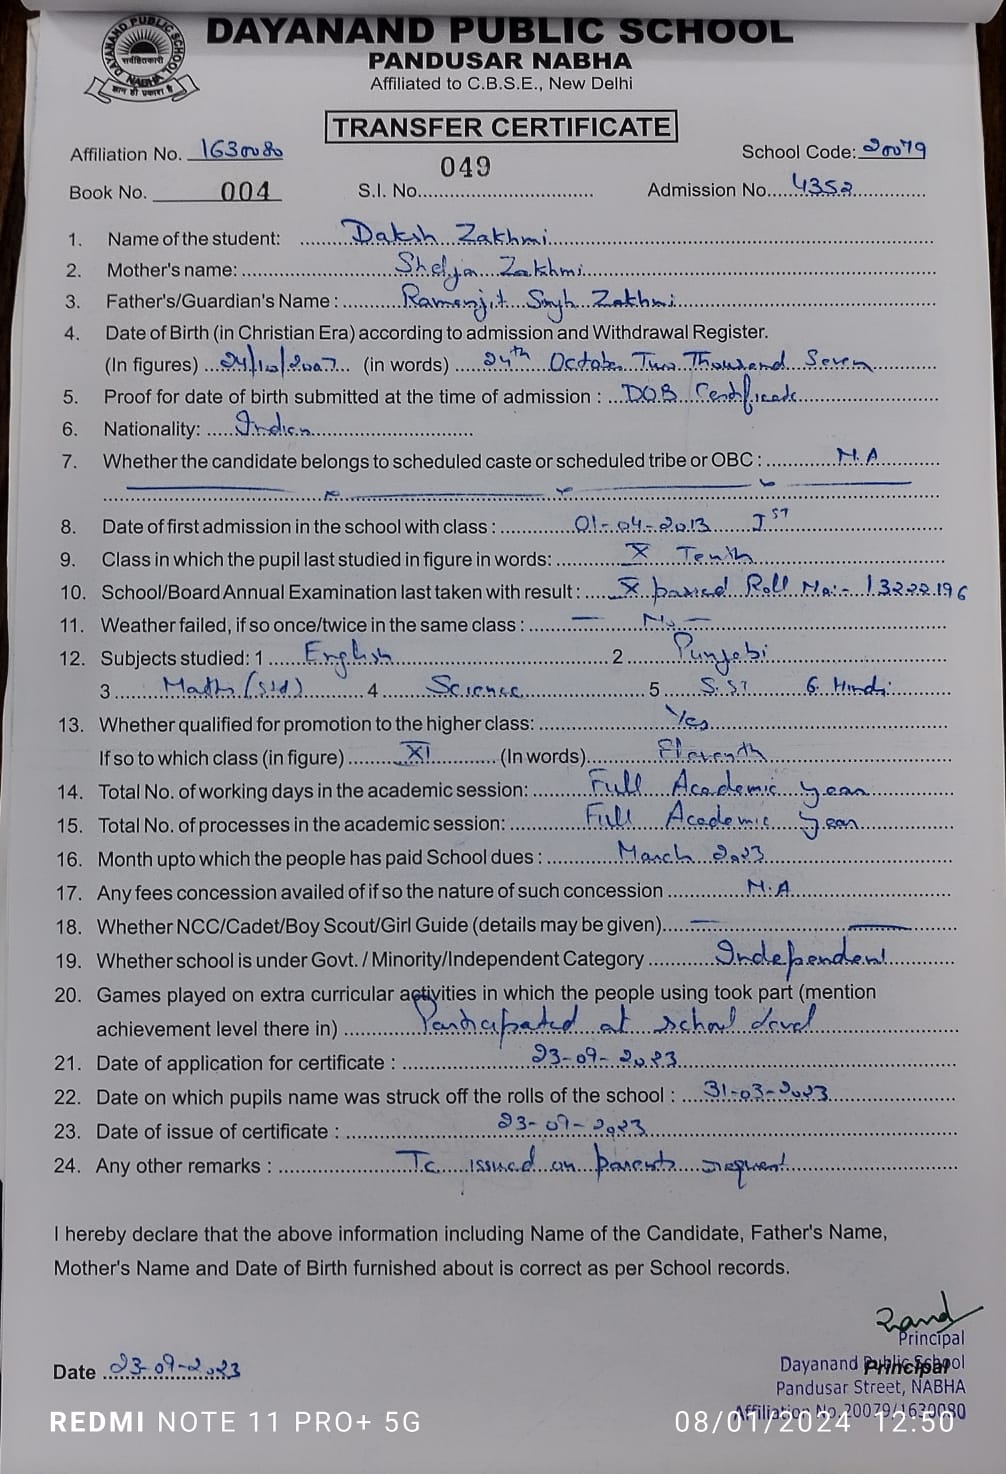 DAYANAND PUBLIC SCHOOL
PANDUSAR NABHA
Affiliated to C.B.S.E., New Delhi
DAYANAND PUBLIC SCHOOL
सर्वहितकारी
NABHA
ज्ञान ही प्रकाश है
TRANSFER CERTIFICATE
Affiliation No. 1630080 School Code: 20079
049
Book No. 004 S.I. No. Admission No. 4352
1. Name of the student: Daksh Zakhmi
2. Mother's name: Shelja Zakhmi
3. Father's/Guardian's Name : Ramanjit Singh Zakhmi
4. Date of Birth (in Christian Era) according to admission and Withdrawal Register.
(In figures) 24/10/2007 (in words) 24th October Two Thousand Seven
5. Proof for date of birth submitted at the time of admission : DOB Certificate
6. Nationality: Indian
7. Whether the candidate belongs to scheduled caste or scheduled tribe or OBC : N.A
8. Date of first admission in the school with class : 01-04-2013 Ist
9. Class in which the pupil last studied in figure in words: X Tenth
10. School/Board Annual Examination last taken with result : X passed Roll No:- 13222196
11. Weather failed, if so once/twice in the same class : — No —
12. Subjects studied: 1 English 2 Punjabi
3 Maths (Std) 4 Science 5 S.St 6 Hindi
13. Whether qualified for promotion to the higher class: Yes
If so to which class (in figure) XI (In words) Eleventh
14. Total No. of working days in the academic session: Full Academic year
15. Total No. of processes in the academic session: Full Academic year
16. Month upto which the people has paid School dues : March 2023
17. Any fees concession availed of if so the nature of such concession N.A
18. Whether NCC/Cadet/Boy Scout/Girl Guide (details may be given) —
19. Whether school is under Govt. / Minority/Independent Category Independent
20. Games played on extra curricular activities in which the people using took part (mention
achievement level there in) Participated at school level
21. Date of application for certificate : 23-09-2023
22. Date on which pupils name was struck off the rolls of the school : 31-03-2023
23. Date of issue of certificate : 23-09-2023
24. Any other remarks : Tc issued on parents request
I hereby declare that the above information including Name of the Candidate, Father's Name,
Mother's Name and Date of Birth furnished about is correct as per School records.
Principal
Dayanand Public School
Principal
Pandusar Street, NABHA
Affiliation No. 20079/1630080
Date 23-09-2023
REDMI NOTE 11 PRO+ 5G 08/01/2024 12:50